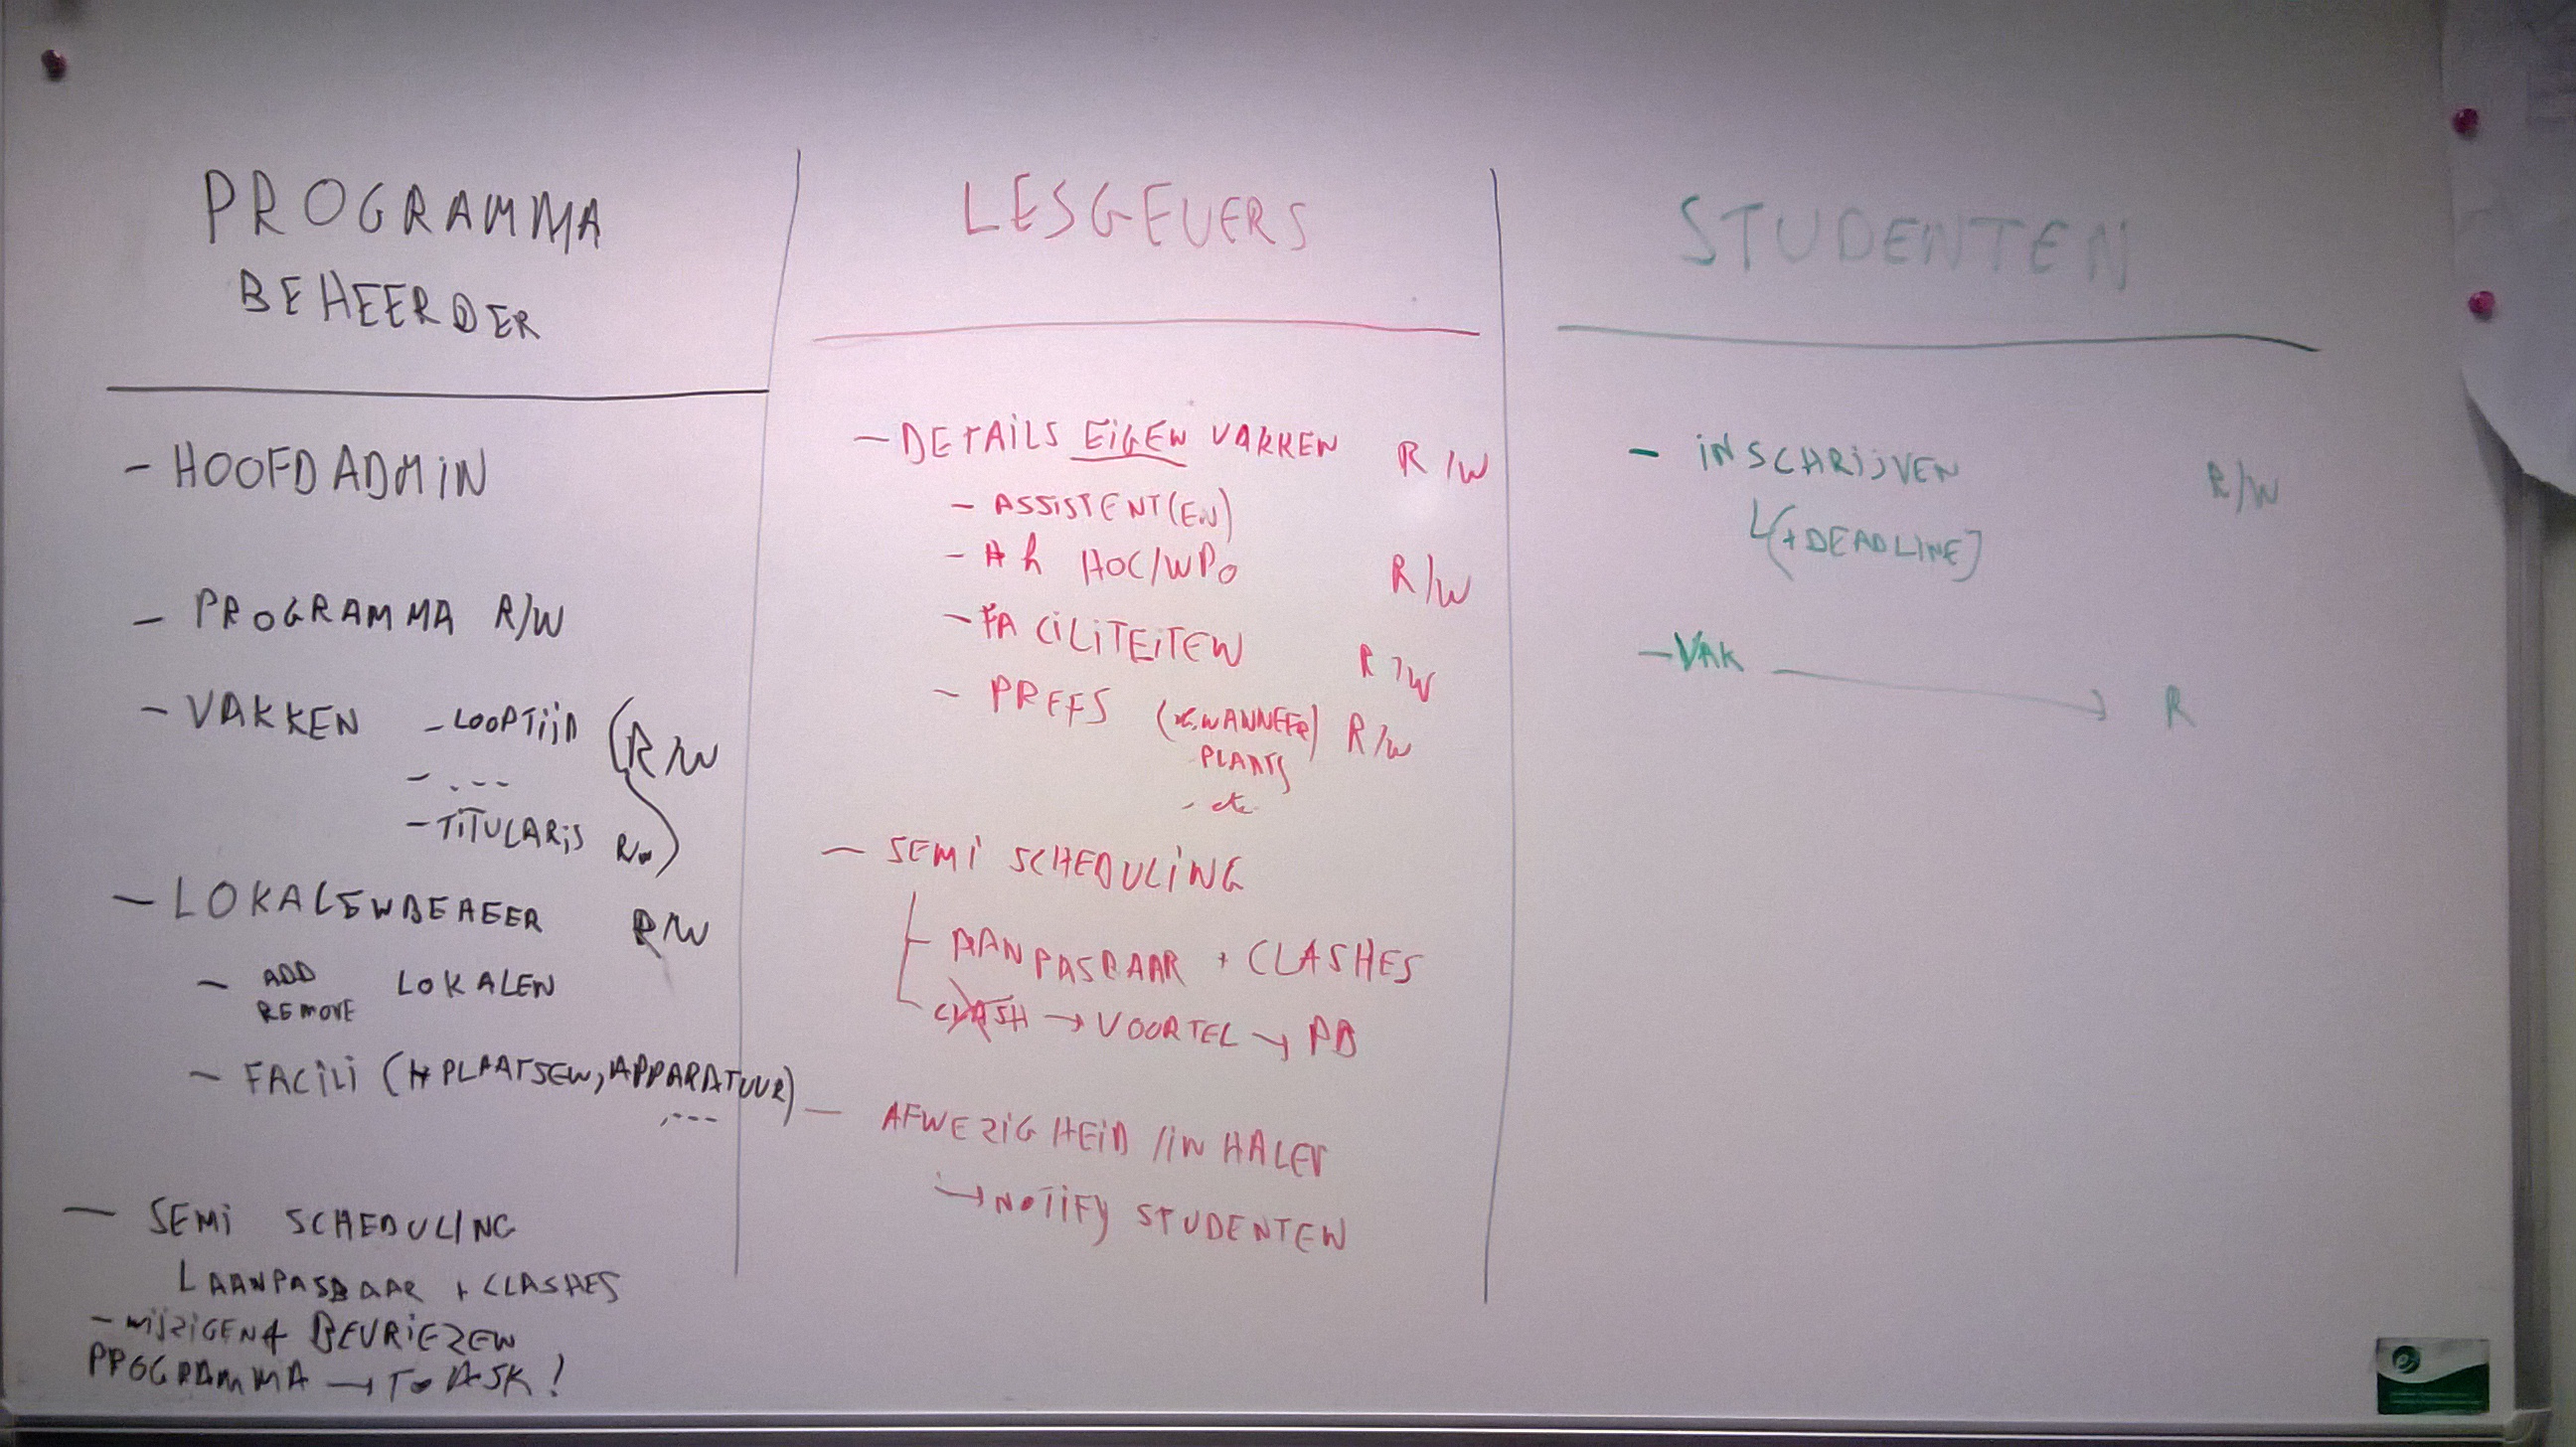 PROGRAMMA
BEHEERDER
- HOOFDADMIN
- PROGRAMMA R/W
- VAKKEN - LOOPTIJD (R/W
- ...
- TITULARIS RW)
- LOKALENBEHEER R/W
- ADD
REMOVE LOKALEN
- FACILI (# PLAATSEN, APPARATUUR)
, ...
- SEMI SCHEDULING
AANPASBAAR + CLASHES
- WIJZIGEN & BEVRIEZEN
PROGRAMMA → TO ASK!
LESGEVERS
- DETAILS EIGEN VAKKEN R/W
- ASSISTENT(EN)
- # h HOC/WPO R/W
- FACILITEITEN R/W
- PREFS (WANNEER) R/W
- PLAATS
- etc
- SEMI SCHEDULING
AANPASBAAR + CLASHES
CLASH → VOORTEL → PB
- AFWEZIGHEID / INHALEN
→ NOTIFY STUDENTEN
STUDENTEN
- INSCHRIJVEN R/W
(+ DEADLINE)
- VAK → R